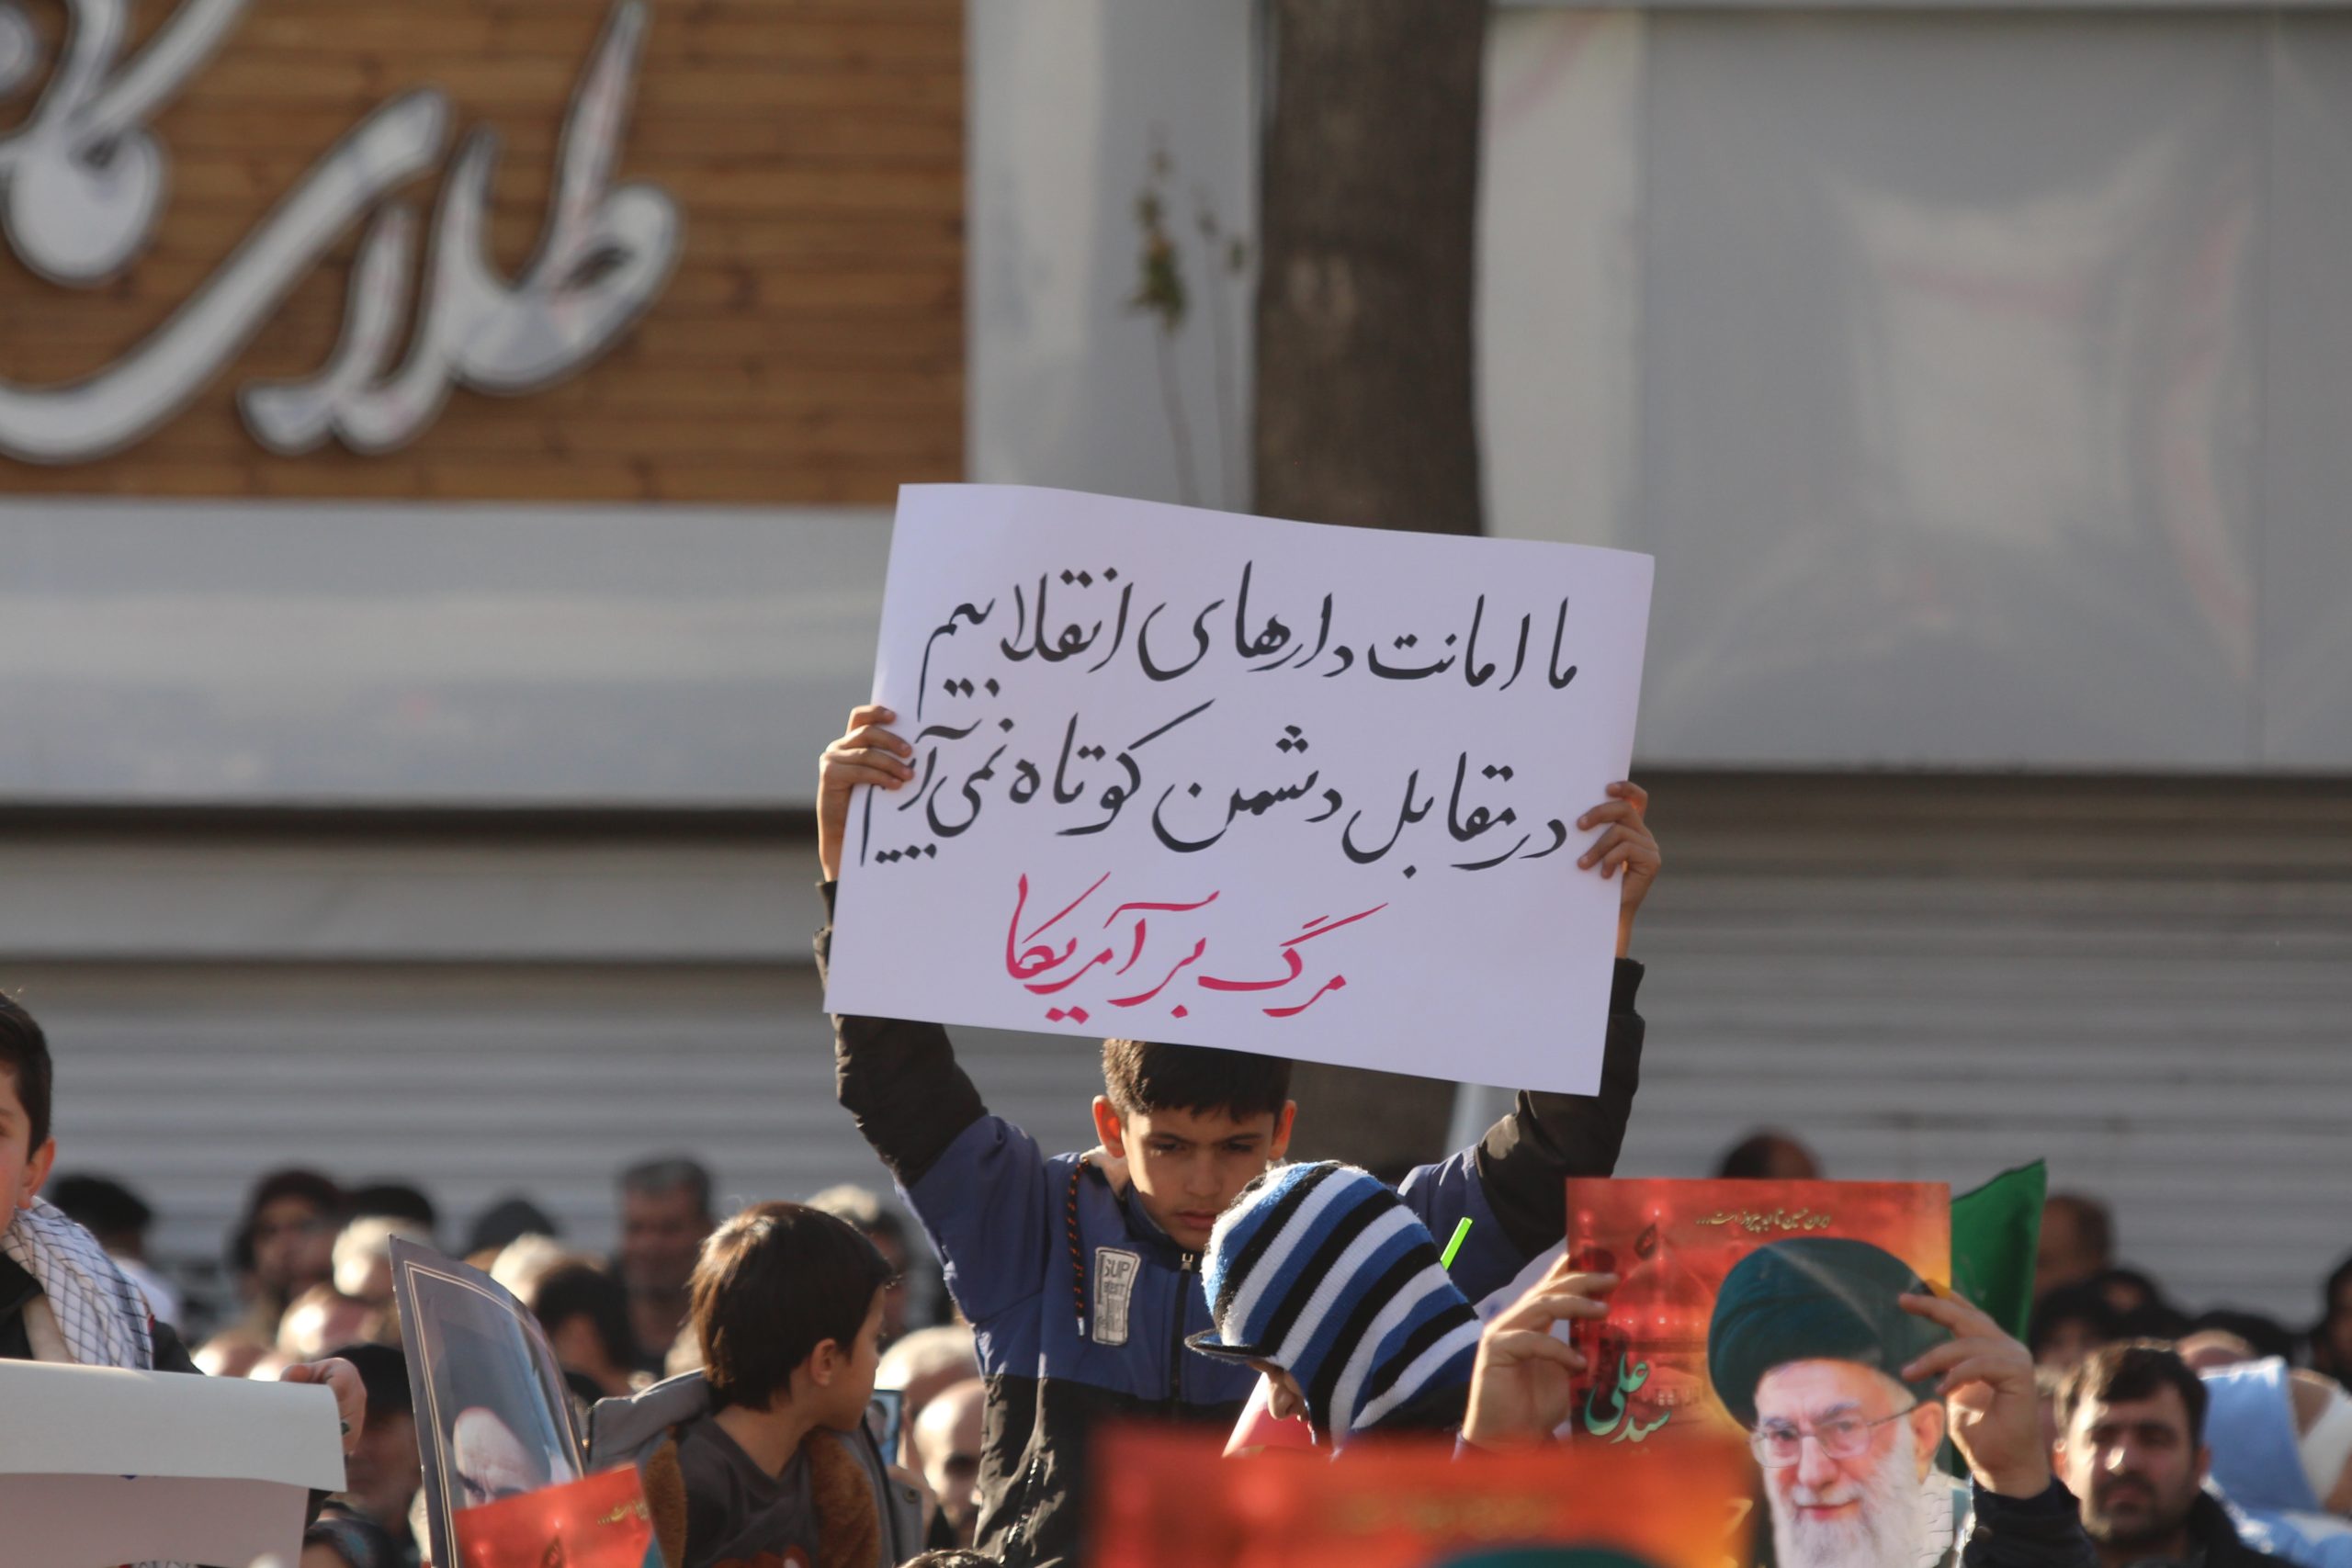 طلای
ما امانت دارهای انقلابیم
در مقابل دشمن کوتاه نمی آییم
مرگ بر آمریکا
سید علی